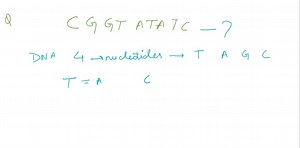 Q C G G T A T A T C — ?
DNA 4 → nucleotides → T A G C
T = A C